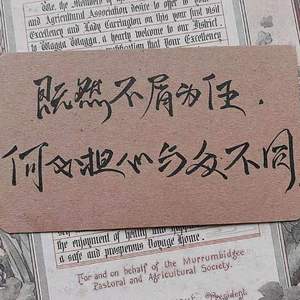 We, the Members of
and Agricultural Association desire to offer to your
Excellency and Lady Carrington on this your first visit
to Wagga Wagga, a hearty welcome to our District.
gratification that Your Excellency
既然不屑为伍，
何必担心与众不同
the enjoyment of health and happiness
a safe and prosperous Voyage Home.
For and on behalf of the Murrumbidgee
Pastoral and Agricultural Society.
President.